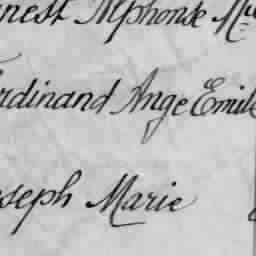 rnest Alphonse
rdinand Ange Emile
oseph Marie